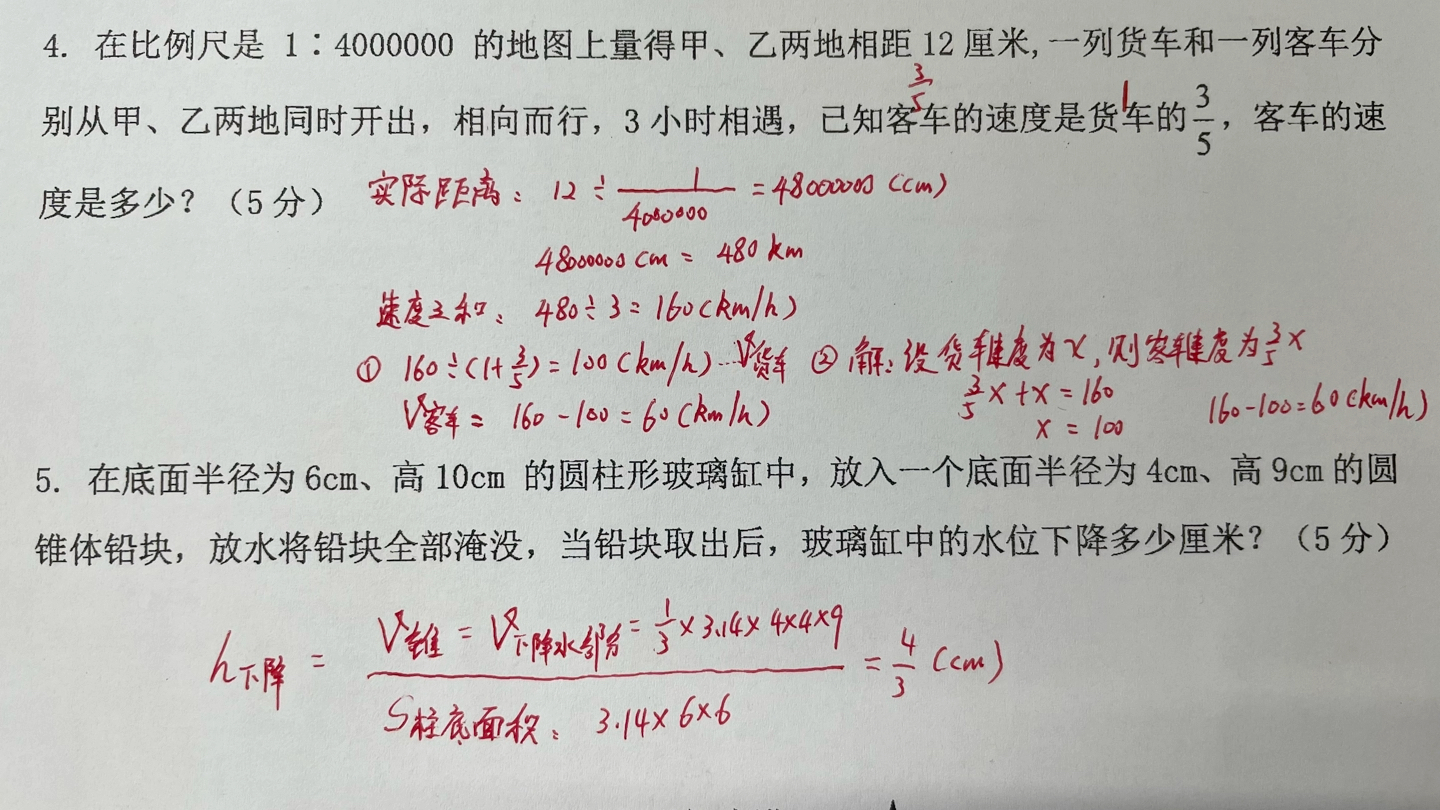 4. 在比例尺是 1：4000000 的地图上量得甲、乙两地相距 12 厘米, 一列货车和一列客车分
3/5 1
别从甲、乙两地同时开出，相向而行，3 小时相遇，已知客车的速度是货车的 3/5，客车的速
度是多少？（5 分） 实际距离：12 ÷ 1/4000000 = 48000000 (cm)
48000000 cm = 480 km
速度之和：480÷3=160(km/h)
① 160÷(1+3/5)=100(km/h)…V货车 ② 解：设货车速度为x，则客车速度为3/5x
3/5x+x=160
V客车= 160-100=60(km/h) x=100 160-100=60(km/h)
5. 在底面半径为 6cm、高 10cm 的圆柱形玻璃缸中，放入一个底面半径为 4cm、高 9cm 的圆
锥体铅块，放水将铅块全部淹没，当铅块取出后，玻璃缸中的水位下降多少厘米？（5 分）
V锥 = V下降水部分 = 1/3×3.14×4×4×9
h下降 = = 4/3 (cm)
S柱底面积：3.14×6×6